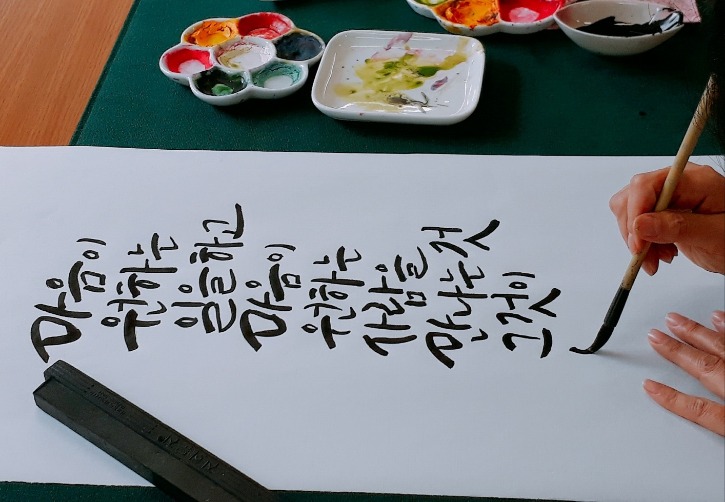 마음이
원하는
일을하고
마음이
원하는
사람을
만나는 것
그것이